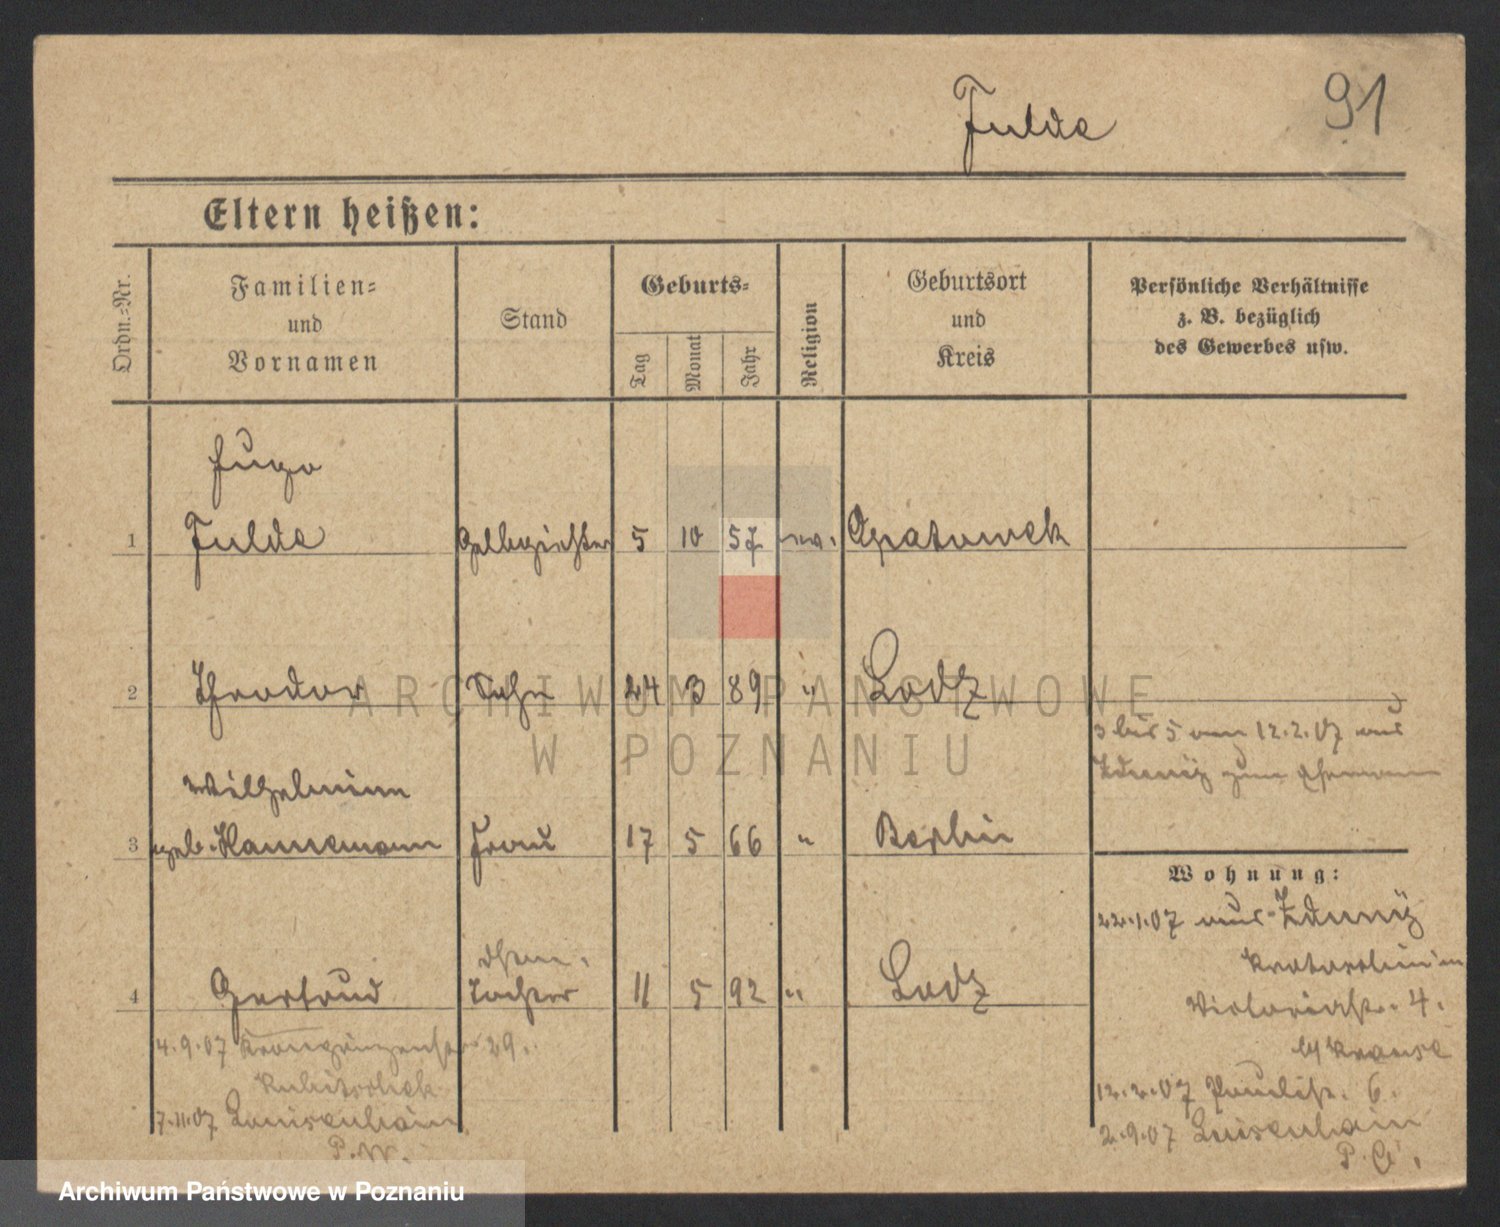 Fulde
91
Eltern heißen:
Ordn.-Nr.
Familien-
und
Vornamen
Stand
Geburts-
Tag
Monat
Jahr
Religion
Geburtsort
und
Kreis
Persönliche Verhältnisse
z. B. bezüglich
des Gewerbes usw.
Hugo
1 Fulde Gelbgießer 5 10 57 ev. Opatowek
2 Theodor Sohn 24 3 89 " Lodz
3 bis 5 am 12.2.07 aus
Zduny zum Ehemann
Wilhelmine
3 geb. Hannemann Frau 17 5 66 " Berlin
Wohnung:
22.1.07 aus Zduny
Krotoschin
Victoriastr. 4.
b/ Krause
12.2.07 Paulistr. 6.
2.9.07 Luisenhain
P. O.
4 Gertrud Tochter 11 5 92 " Lodz
4.9.07 Kronprinzenstr 29.
7.11.07 Louisenhain
P. W.
ARCHIWUM PAŃSTWOWE
W POZNANIU
Archiwum Państwowe w Poznaniu